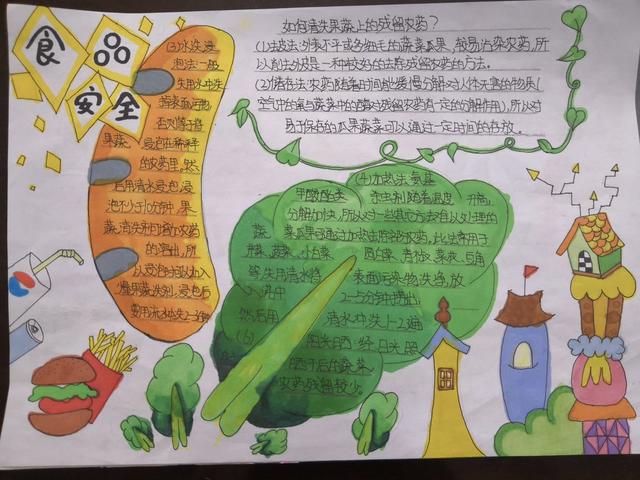 食品
安全
如何清洗果蔬上的残留农药?
(1)去皮法:外表不平或多细毛的蔬菜瓜果,较易沾染农药,所
以削去外皮是一种较好的去除残留农药的方法。
(2)储存法:农药随着时间能缓慢分解对人体无害的物质(
空气中的氧与蔬菜中的酶对残留农药有一定的分解作用),所以对
易于保存的瓜果蔬菜可以通过一定时间的存放。
(3)水洗浸
泡法:一般
先用水冲洗
掉表面污物,
否则等于将
果蔬 浸泡在稀释
的农药里。然
后用清水浸泡,浸
泡不少于10分钟,果
蔬清洗剂可增加农药
的溶出,所
以浸泡时可以加入
果蔬洗剂,浸泡后
要用流水冲洗2-3遍
(4)加热法:氨基
甲酸酯类 杀虫剂随着温度 升高,
分解加快,所以对一些其他方法难以处理的
蔬菜瓜果可通过加热去除部分农药,此法常用于
芹菜、菠菜、小白菜、圆白菜、青椒、菜花、豆角
等。先用清水将 表面污染物洗净,放
2-5分钟捞出,
然后用 清水冲洗1-2遍
阳光晒:经日光照
晒干后的蔬菜,
农药残留较少。